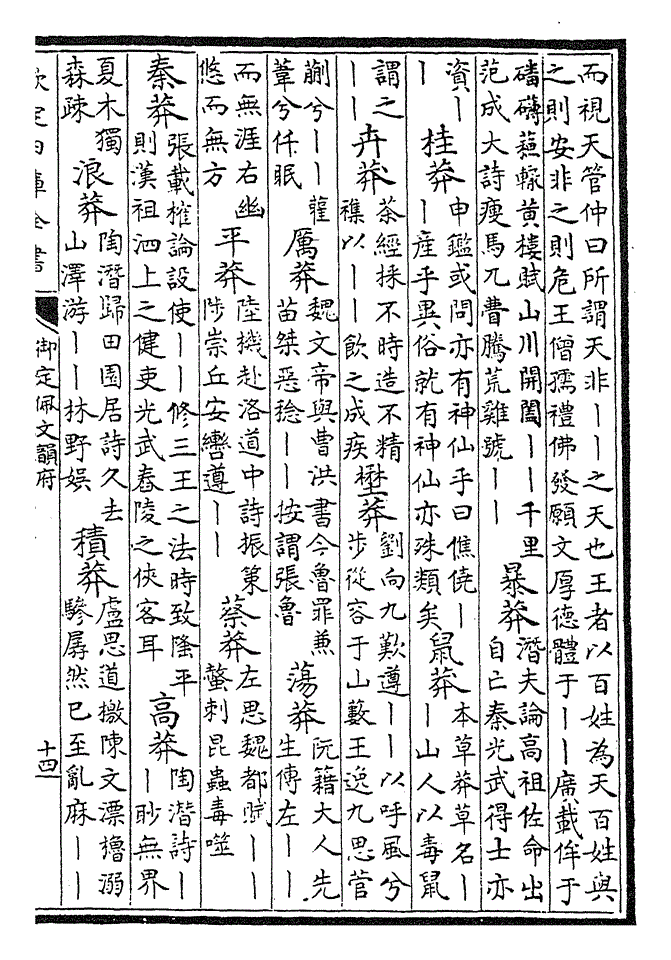 而視天管仲曰所謂天非——之天也王者以百姓為天百姓與
之則安非之則危王僧孺禮佛發願文厚德體于——廣載侔于
磻礡蘓轍黄樓賦山川開闔——千里
范成大詩瘦馬兀瞢騰荒雞號——
暴莽
潛夫論高祖佐命出
自亡秦光武得士亦
資—
—
桂莽
申鑑或問亦有神仙乎曰僬僥—
—產乎異俗就有神仙亦殊類矣
鼠莽
本草莽草名—
—山人以毒鼠
謂之
——
卉莽
茶經採不時造不精
襍以——飲之成疾
壄莽
劉向九歎遵——以呼風兮
步從容于山藪王逸九思菅
蒯兮——雚
葦兮仟眠
厲莽
魏文帝與曹洪書今魯罪兼
苗桀惡稔——按謂張魯
蕩莽
阮籍大人先
生傳左——
而無涯右幽
悠而無方
平莽
陸機赴洛道中詩振策
陟崇丘安轡遵——
蔡莽
左思魏都賦——
螫刺昆蟲毒噬
秦莽
張載榷論設使——修三王之法時致隆平
則漢祖泗上之健吏光武舂陵之俠客耳
高莽
陶潛詩—
—眇無界
夏木獨
森疎
浪莽
陶潛歸田園居詩久去
山澤游——林野娛
積莽
盧思道檄陳文漂櫓溺
驂孱然已至亂麻——
欽定四庫全書
御定佩文韻府
十四